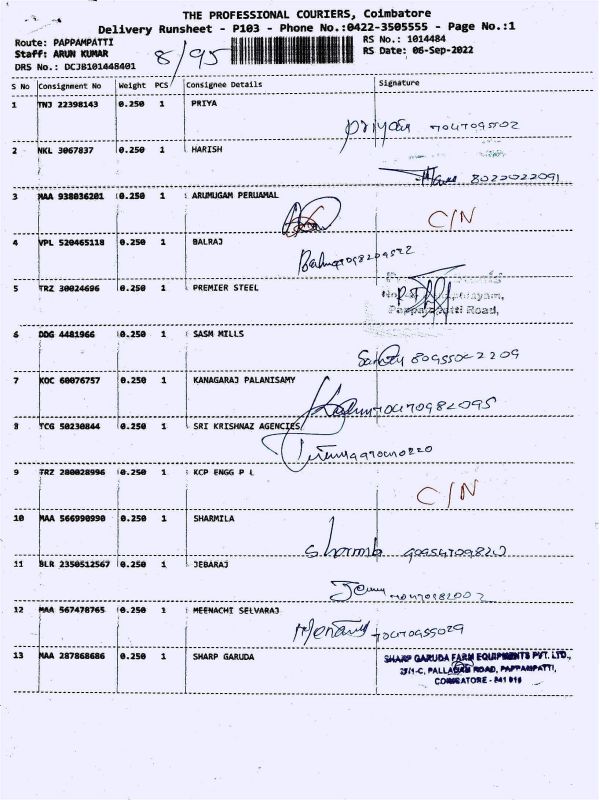 THE PROFESSIONAL COURIERS, Coimbatore
Delivery Runsheet - P103 - Phone No.:0422-3505555 - Page No.:1
Route: PAPPAMPATTI RS No.: 1014484
Staff: ARUN KUMAR 8/95 RS Date: 06-Sep-2022
DRS No.: DCJB101448401
S No Consignment No Weight PCS Consignee Details Signature
1 TNJ 22398143 0.250 1 PRIYA
Priya
2 NKL 3067837 0.250 1 HARISH
8022022091
3 MAA 938036201 0.250 1 ARUMUGAM PERUAMAL
C/N
4 VPL 520465118 0.250 1 BALRAJ
5 TRZ 30024696 0.250 1 PREMIER STEEL
Pappampatti Road,
6 DDG 4481966 0.250 1 SASM MILLS
80955022209
7 KOC 60076757 0.250 1 KANAGARAJ PALANISAMY
8 TCG 50230844 0.250 1 SRI KRISHNAZ AGENCIES
9 TRZ 280028996 0.250 1 KCP ENGG P L
C/N
10 MAA 566990990 0.250 1 SHARMILA
Sharmila
11 BLR 2350512567 0.250 1 JEBARAJ
12 MAA 567478765 0.250 1 MEENACHI SELVARAJ
13 MAA 287868686 0.250 1 SHARP GARUDA
SHARP GARUDA FARM EQUIPMENTS PVT. LTD.,
PALLADAM ROAD, PAPPAMPATTI,
COIMBATORE - 641 016